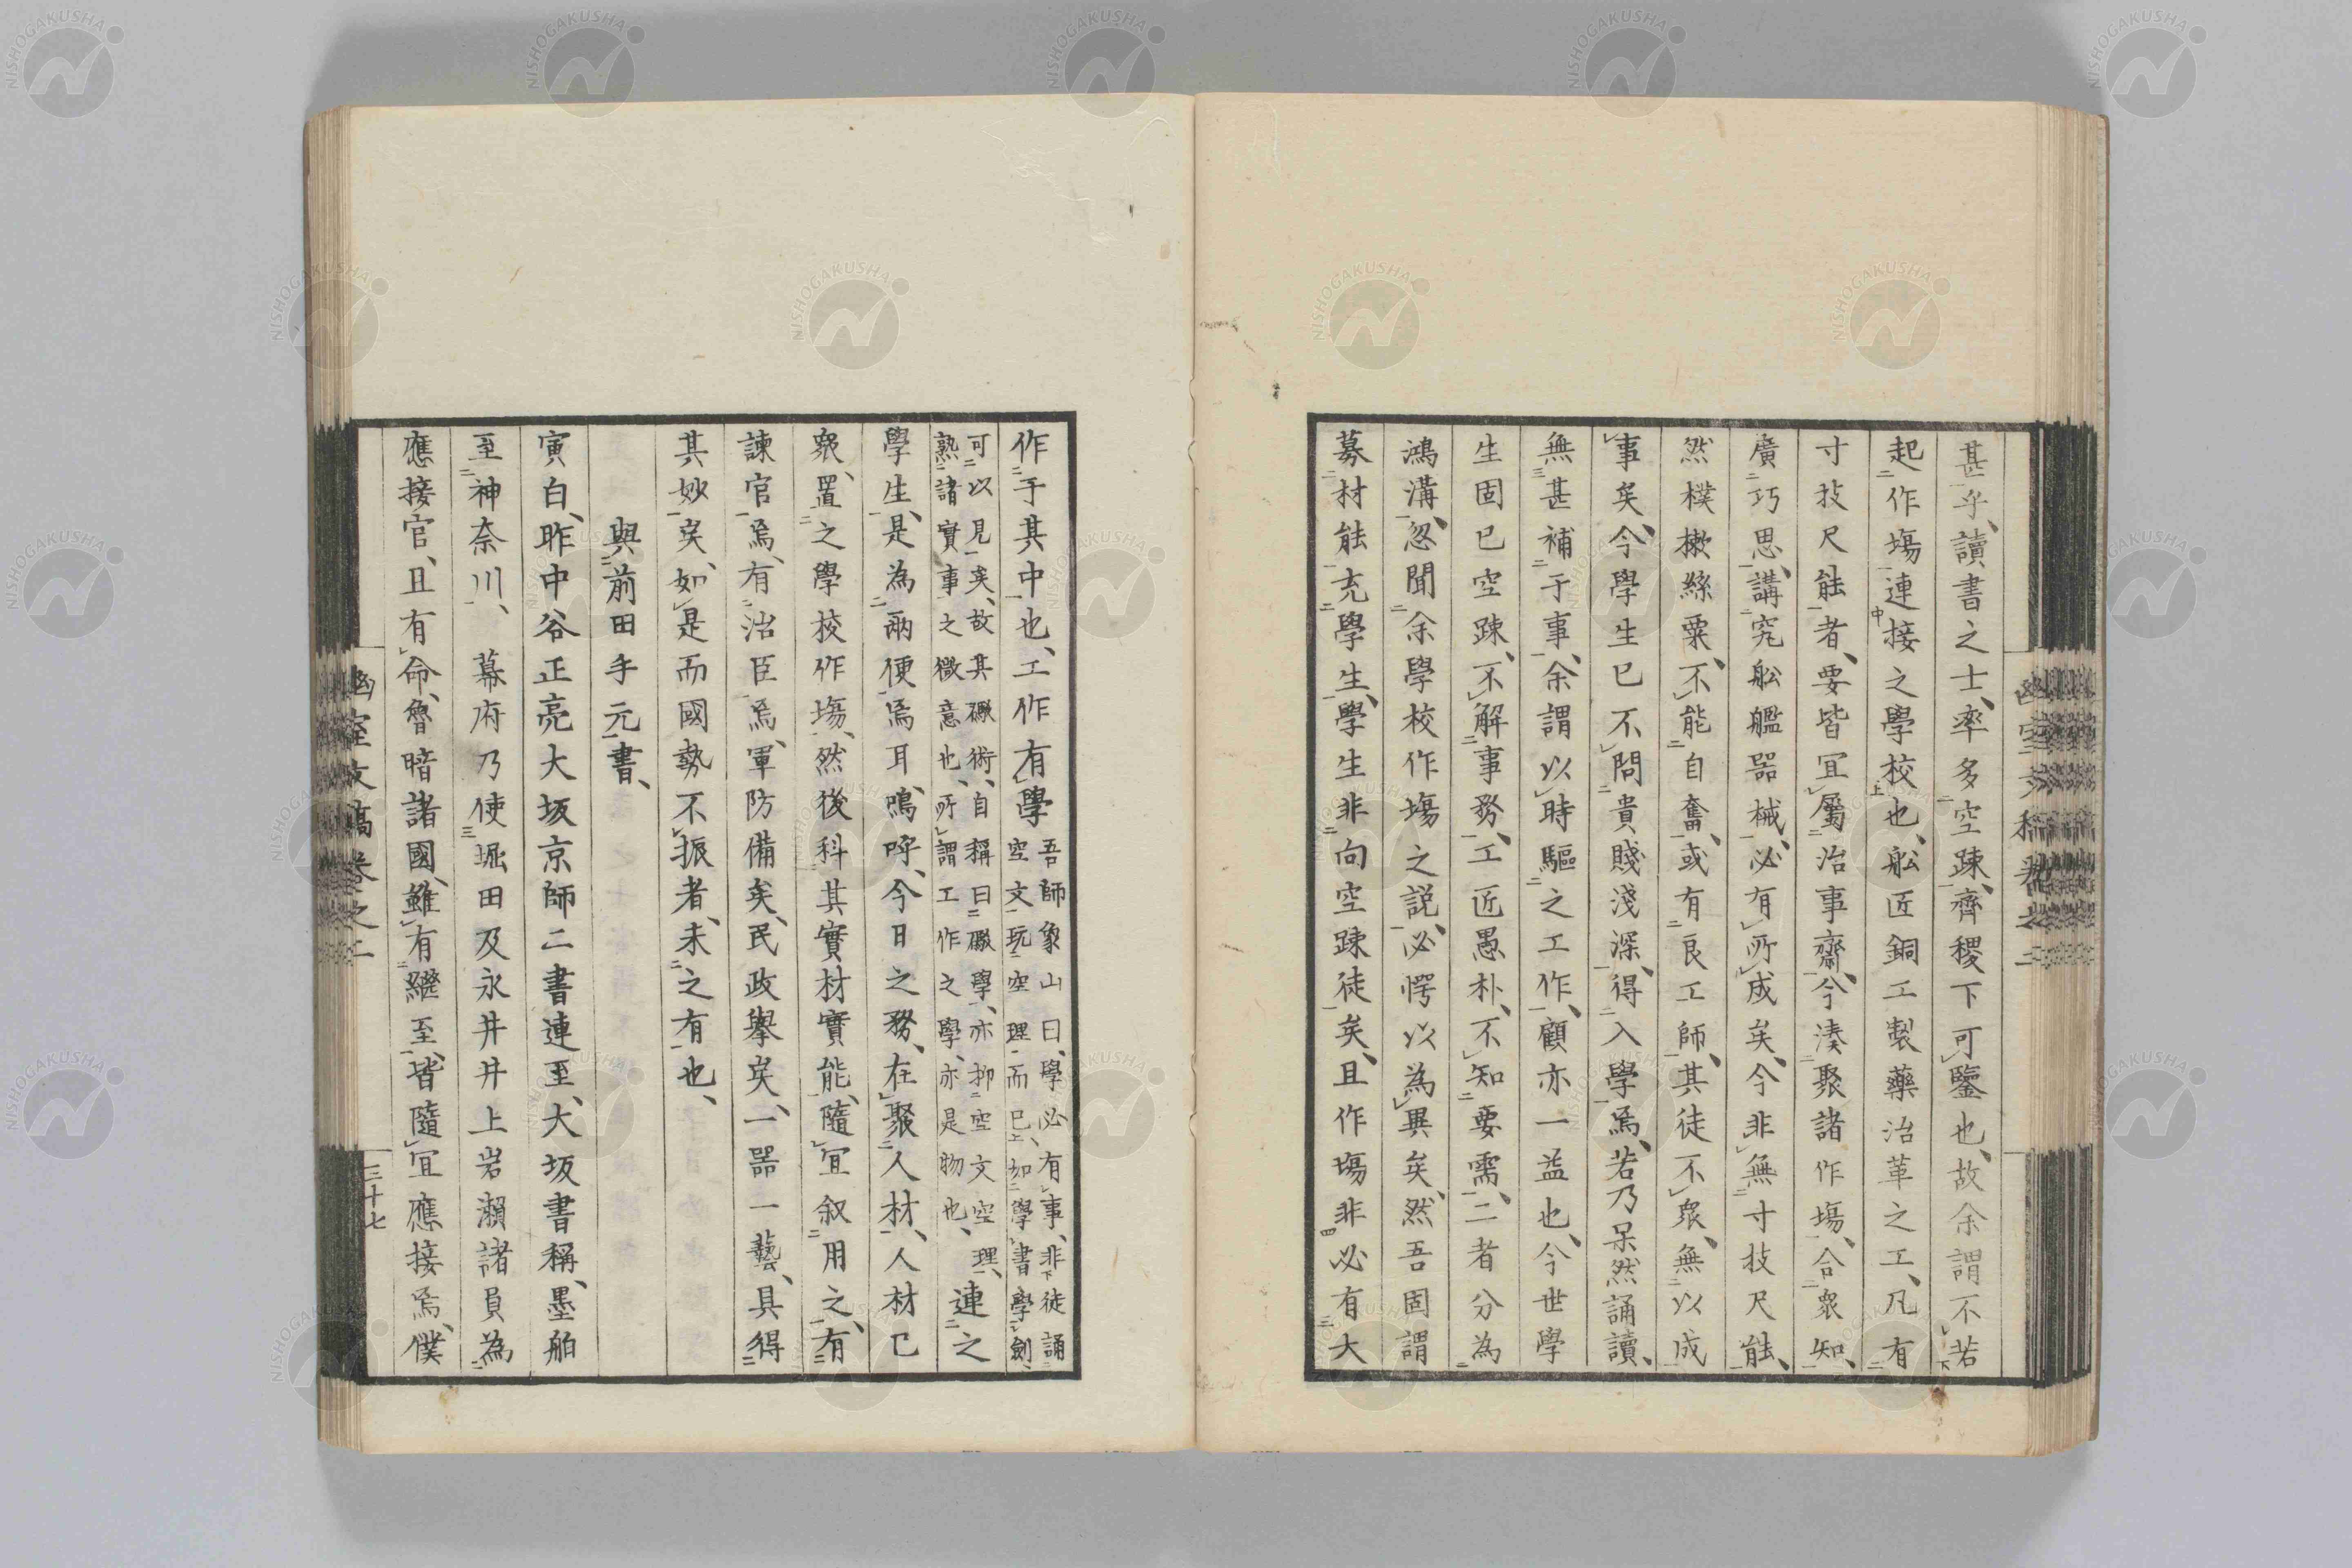 甚乎、讀書之士、率多空疎、齊稷下可鑒也、故余謂不若
起作塲連接之學校也、舩匠銅工製藥治革之工、凡有
寸技尺能者、要皆冝屬治事齋、今湊聚諸作塲、合衆知、
廣巧思、講究舩艦噐械、必有所成矣、今非無寸技尺能、
然樸樕絲粟、不能自奮、或有良工師、其徒不衆、無以成
事矣、今學生已不問貴賤淺深、得入學焉、若乃呆然誦讀、
無甚補于事、余謂以時驅之工作、顧亦一益也、今世學
生固已空疎、不解事務、工匠愚朴、不知要需、二者分為
鴻溝、忽聞余學校作塲之説、必愕以為異矣、然吾固謂
募材能充學生、學生非向空疎徒矣、且作塲非必有大
幽室文稿卷之二
作于其中也、工作有學吾師象山曰、學必有事、非徒誦
空文玩空理而已、如學書學劍、
可以見矣、故其礮術、自稱曰礮學、亦抑空文空理、
熟諸實事之微意也、所謂工作之學、亦是物也、連之
學生、是為兩便焉耳、嗚呼、今日之務、在聚人材、人材已
衆、置之學校作塲、然後科其實材實能、隨冝叙用之、有
諫官焉、有治臣焉、軍防備矣、民政擧矣、一噐一藝、具得
其妙矣、如是而國勢不振者、未之有也、
與前田手元書、
寅白、昨中谷正亮大坂京師二書連至、大坂書稱、墨舶
至神奈川、幕府乃使堀田及永井井上岩瀨諸員為
應接官、且有命、魯暗諸國、雖有繼至、皆隨冝應接焉、僕
幽室文稿卷之二
三十七
NISHOGAKUSHA